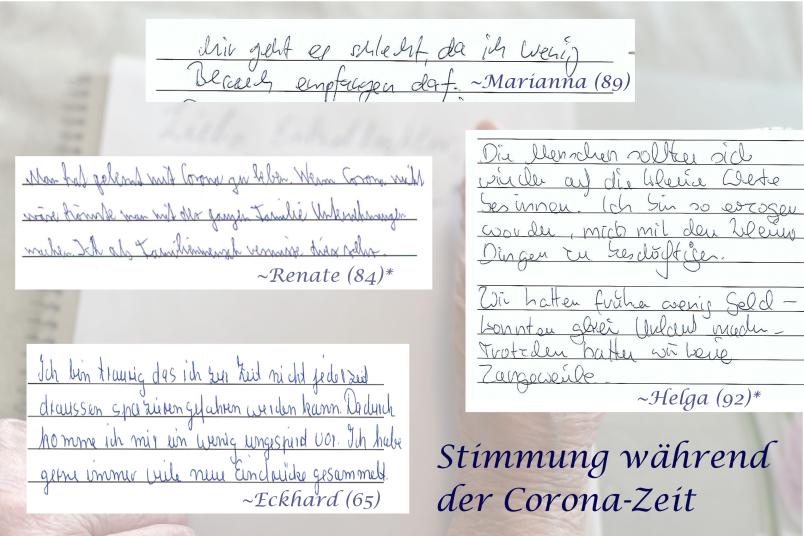 Mir geht es schlecht, da ich wenig
Besuch empfangen darf.
~Marianna (89)
Man hat gelernt mit Corona zu leben. Wenn Corona nicht
wäre könnte man mit der ganzen Familie Unternehmungen
machen. Ich als Familienmensch vermisse dies sehr.
~Renate (84)*
Die Menschen sollten sich
wieder auf die kleine Werte
besinnen. Ich bin so erzogen
worden, mich mit den kleinen
Dingen zu beschäftigen.
Wir hatten früher wenig Geld -
konnten Urlaub machen -
Trotzden hatten wir keine
Langeweile.
~Helga (92)*
Ich bin traurig das ich zur Zeit nicht jederzeit
draussen spazierengefahren werden kann. Dadurch
komme ich mir ein wenig eingesperrt vor. Ich habe
gerne immer viele neue Eindrücke gesammelt.
~Eckhard (65)
Stimmung während
der Corona-Zeit